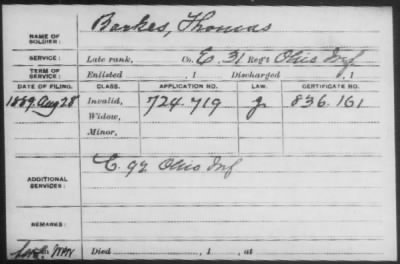 NAME OF SOLDIER: Barkes, Thomas
SERVICE: Late rank, Co. E, 31 Reg't Ohio Inf
TERM OF SERVICE: Enlisted , 1 Discharged , 1
DATE OF FILING. CLASS. APPLICATION NO. LAW. CERTIFICATE NO.
1889. Aug 28 Invalid, 724.719 836.161
Widow,
Minor,
ADDITIONAL SERVICES: E. 92 Ohio Inf
REMARKS:
Died , 1 , at